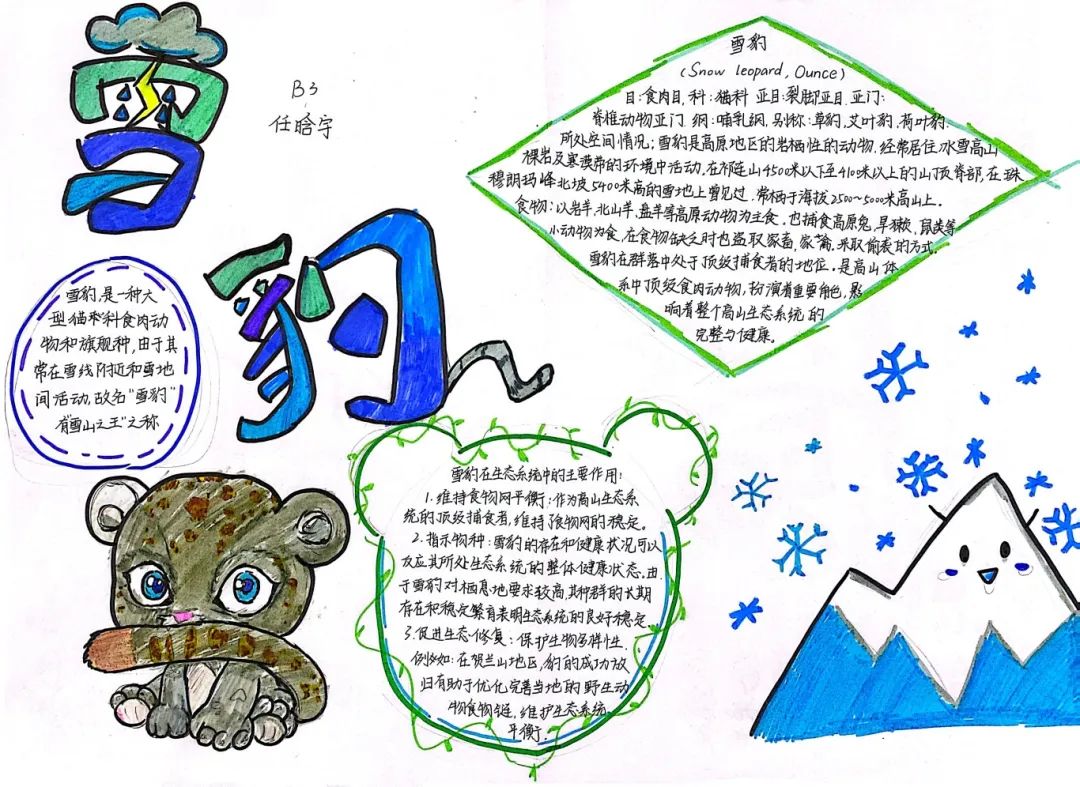 雪豹
B3
任晗宇
雪豹
(Snow leopard, Ounce)
目:食肉目,科:猫科 亚目:裂脚亚目,亚门:
脊椎动物亚门 纲:哺乳纲,别称:草豹,艾叶豹,荷叶豹.
所处空间情况;雪豹是高原地区的岩栖性的动物,经常居住冰雪高山
裸岩及寒漠带的环境中活动,在祁连山4500米以下至4100米以上的山顶脊部,在珠
穆朗玛峰北坡5400米高的雪地上曾见过,常栖于海拔2500~5000米高山上.
食物:以岩羊,北山羊,盘羊等高原动物为主食,也捕食高原兔,旱獭,鼠类等
小动物为食,在食物缺乏时也盗取家畜,家禽,采取偷袭的方式.
雪豹在群落中处于顶级捕食者的地位,是高山体
系中顶级食肉动物,扮演着重要角色,影
响着整个高山生态系统的
完整与健康。
雪豹,是一种大
型猫科食肉动
物和旗舰种,由于其
常在雪线附近和雪地
间活动,故名"雪豹"
有"雪山之王"之称
雪豹在生态系统中的主要作用:
1.维持食物网平衡:作为高山生态系
统的顶级捕食者,维持食物网的稳定。
2.指示物种:雪豹的存在和健康状况可以
反应其所处生态系统的整体健康状态.由
于雪豹对栖息地要求较高,其种群的长期
存在和稳定繁育表明生态系统的良好稳定.
3.促进生态修复:保护生物多样性.
例如:在贺兰山地区,豹的成功放
归有助于优化完善当地的野生动
物食物链,维护生态系统
平衡.